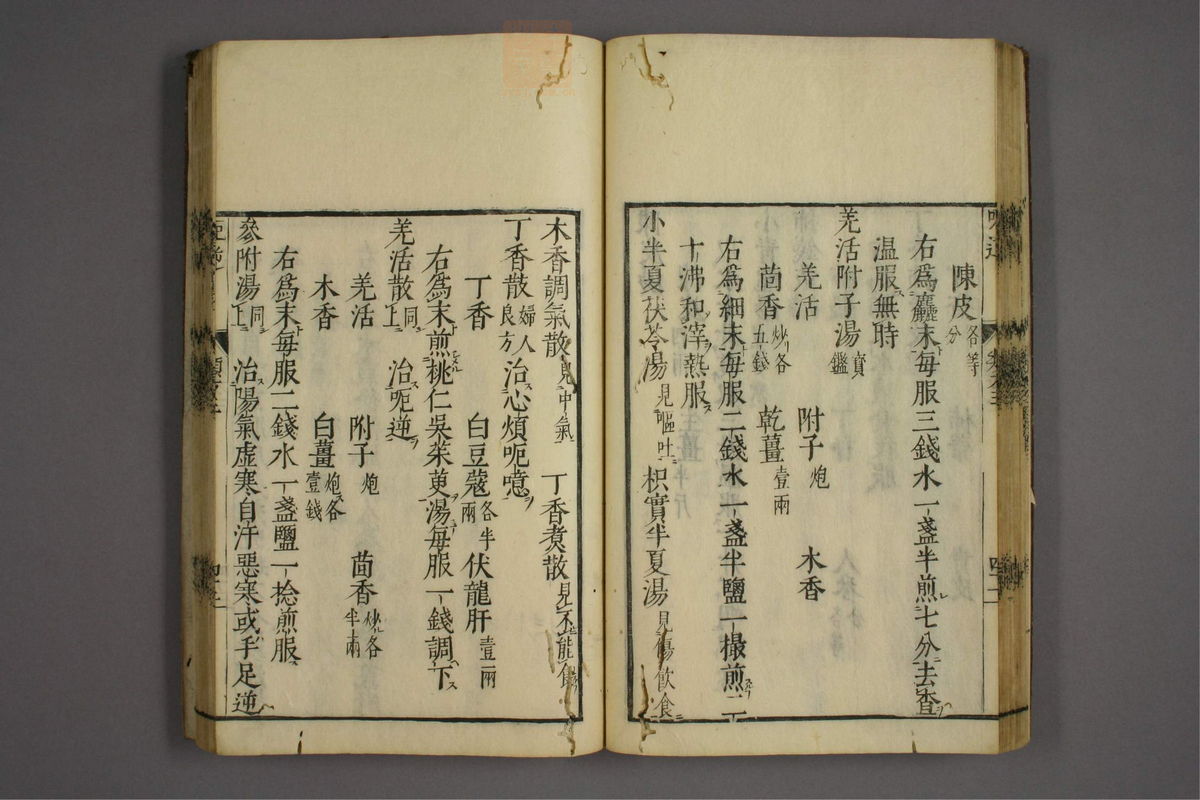 陳皮各等分
右爲麤末每服三錢水一盞半煎七分去査
温服無時
羌活附子湯寶鑑
羌活 附子炮 木香
茴香炒各五錢 乾薑壹兩
右爲細末每服二錢水一盞半鹽一撮煎二
十沸和滓熱服
小半夏茯苓湯見嘔吐 枳實半夏湯見傷飲食
木香調氣散見中氣 丁香煑散見不能食
丁香散婦人良方 治心煩呃噫
丁香 白豆蔻各半兩 伏龍肝壹兩
右爲末煎桃仁吳茱萸湯每服一錢調下
羌活散同上 治呃逆
羌活 附子炮 茴香炒各半兩
木香 白薑炮各壹錢
右爲末每服二錢水一盞鹽一捻煎服
參附湯同上 治陽氣虛寒自汗惡寒或手足逆